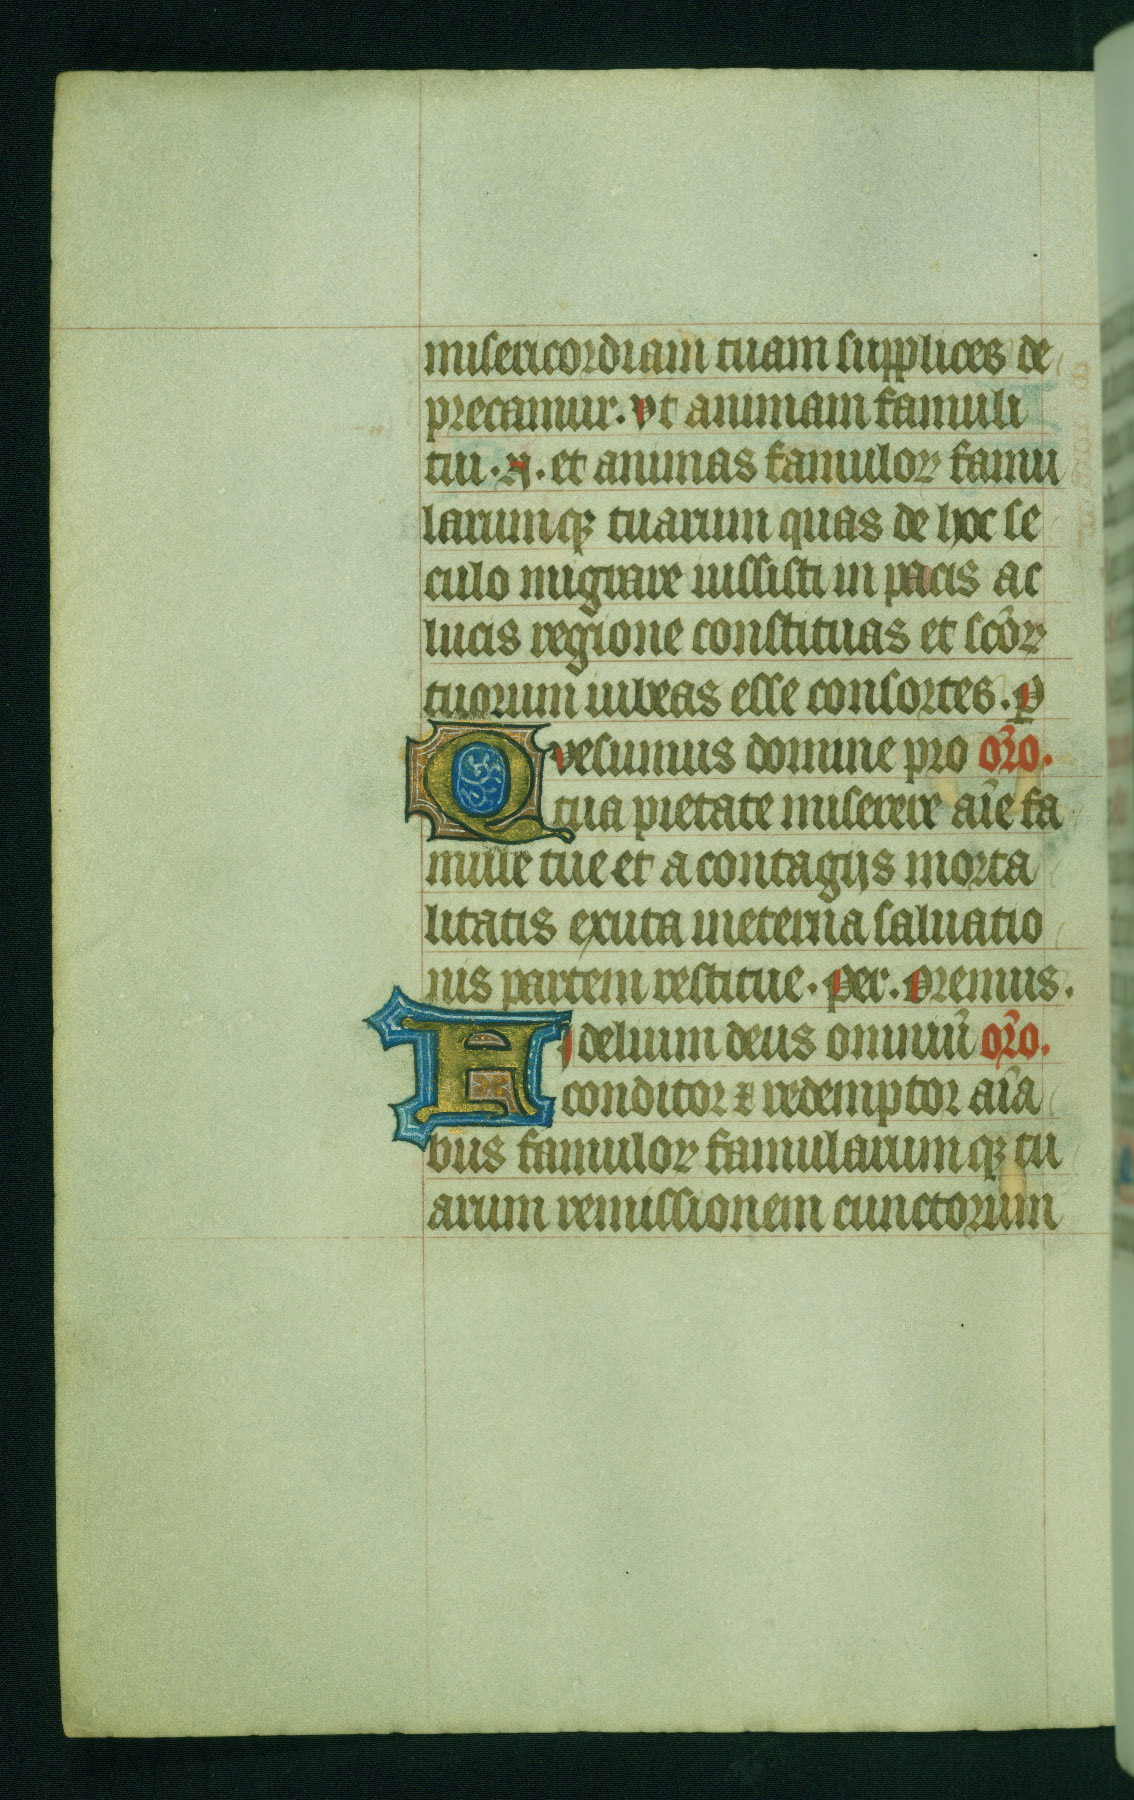 misericordiam tuam supplices de
precamur. vt animam famuli
tui. N. et animas famuloꝝ famu
larumqꝫ tuarum quas de hoc se
culo migrare iussisti in pacis ac
lucis regione constituas et sc̄oꝝ
tuorum iubeas esse consortes. P
Qvesumus domine pro or̄o.
tua pietate miserere aīe fa
mule tue et a contagijs morta
litatis exuta in eterna saluatio
nis partem restitue. Per. Oremus.
Fidelium deus omniū or̄o.
conditor ⁊ redemptor aīa
bus famuloꝝ famularumqꝫ tu
arum remissionem cunctorum